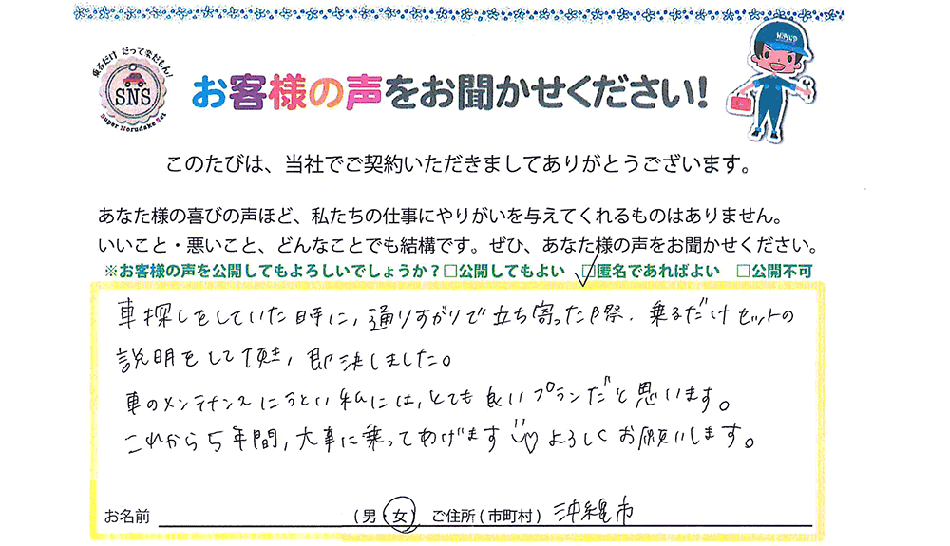 乗るだけ だって楽だもん!
SNS
Super Norudake Set
お客様の声をお聞かせください!
このたびは、当社でご契約いただきましてありがとうございます。
あなた様の喜びの声ほど、私たちの仕事にやりがいを与えてくれるものはありません。
いいこと・悪いこと、どんなことでも結構です。ぜひ、あなた様の声をお聞かせください。
※お客様の声を公開してもよろしいでしょうか?□公開してもよい ☑匿名であればよい □公開不可
車探しをしていた時に、通りすがりで立ち寄った際、乗るだけセットの
説明をして頂き、即決しました。
車のメンテナンスにうとい私には、とても良いプランだと思います。
これから5年間、大事に乗ってあげます♡よろしくお願いします。
お名前 (男・女) ご住所(市町村) 沖縄市